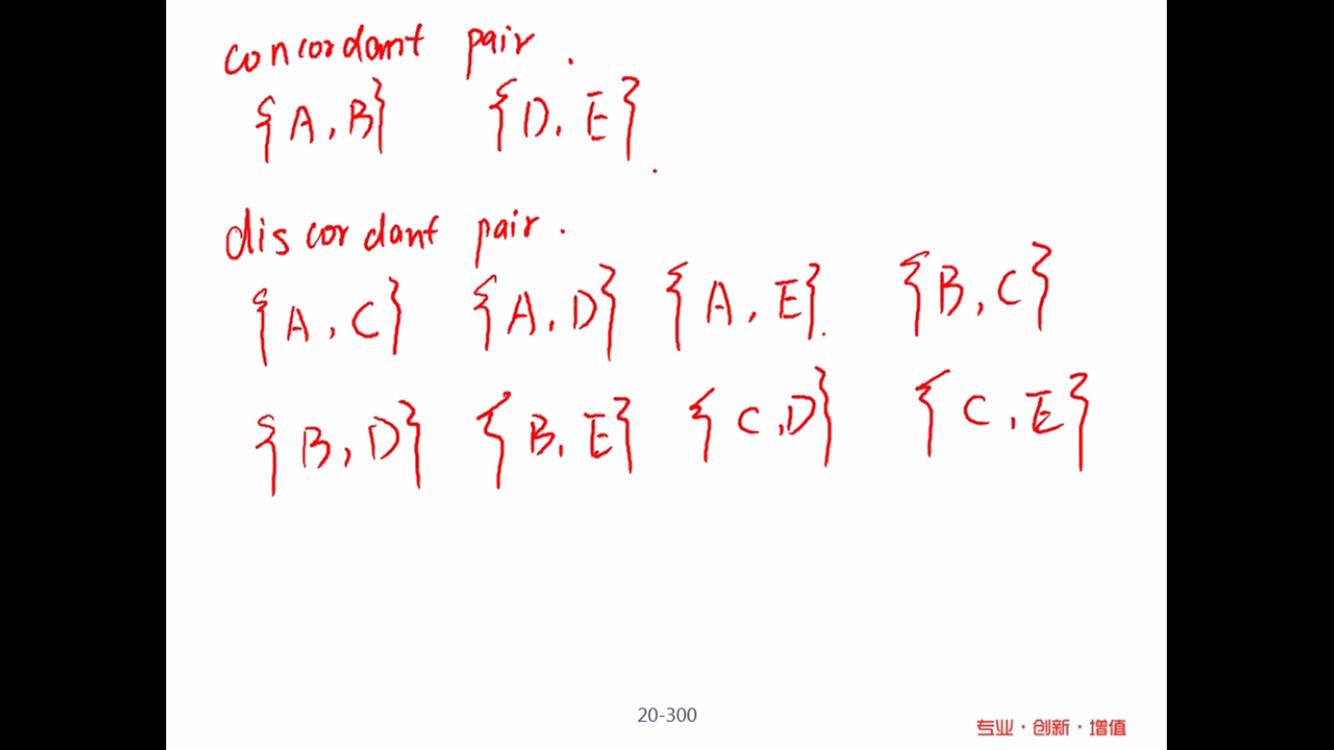 concordant pair.
{A, B} {D, E}.
discordant pair.
{A, C} {A, D} {A, E}. {B, C}
{B, D} {B, E} {C, D} {C, E}
20-300
专业·创新·增值